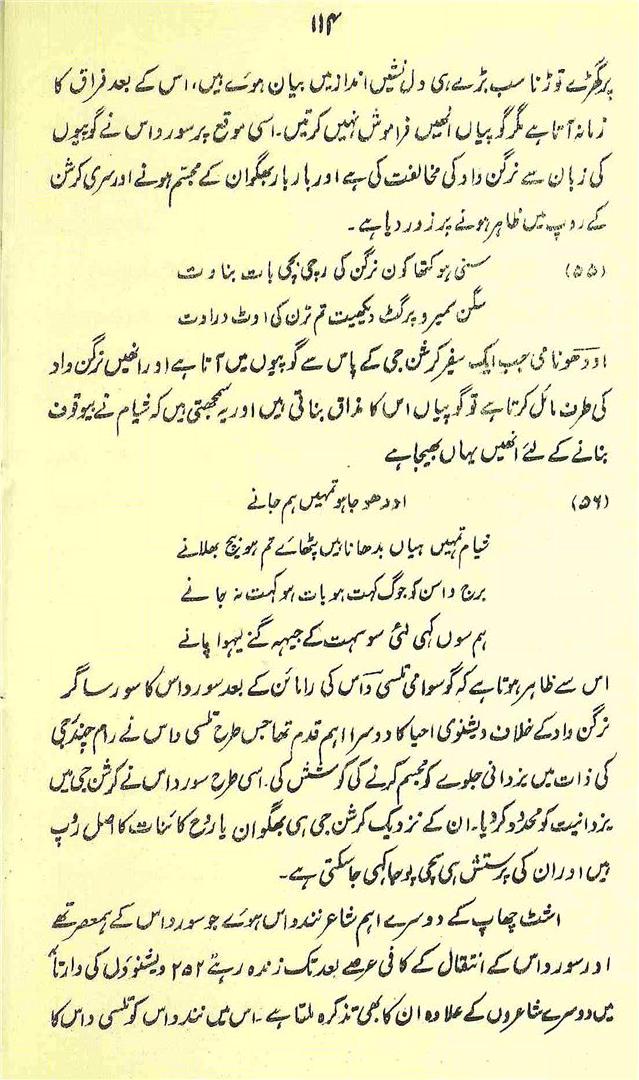 ۱۱۴
پر گھڑے توڑنا سب بڑے ہی دل نشیں انداز میں بیان ہوئے ہیں، اس کے بعد فراق کا
زمانہ آتا ہے مگر گوپیاں انھیں فراموش نہیں کرتیں۔ اسی موقع پر سورداس نے گوپیوں
کی زبان سے نرگن واد کی مخالفت کی ہے اور بار بار بھگوان کے مجسم ہونے اور سری کرشن
کے روپ میں ظاہر ہونے پر زور دیا ہے۔
(۵۵) سنی ہو کتھا کون نرگن کی رچی پچی بات بناوت
سگن سمیرو پرگٹ دیکھیت تم ترن کی اوٹ دراوت
اودھو نامی جب ایک سفیر کرشن جی کے پاس سے گوپیوں میں آتا ہے اور انھیں نرگن واد
کی طرف مائل کرتا ہے تو گوپیاں اس کا مذاق بناتی ہیں اور یہ سمجھتی ہیں کہ شیام نے بیوقوف
بنانے کے لئے انھیں یہاں بھیجا ہے
(۵۶) اودھو جاہو تمہیں ہم جانے
شیام تمہیں ہیاں پٹھائے تم ہو بیچ بھلانے
برج واسن کو جوگ کہت ہو بات ہو کہت نہ جانے
ہم سوں کہی لئی سو سہت کے جیہہ گنے لیہو اپانے
اس سے ظاہر ہوتا ہے کہ گوسوامی تلسی داس کی رامائن کے بعد سورداس کا سورساگر
نرگن واد کے خلاف ویشنوی احیا کا دوسرا اہم قدم تھا جس طرح تلسی داس نے رام چندر جی
کی ذات میں یزدانی جلوے کو مجسم کرنے کی کوشش کی۔ اسی طرح سورداس نے کرشن جی میں
یزدانیت کو محدود کر دیا۔ ان کے نزدیک کرشن جی ہی بھگوان یا روح کائنات کا اصل روپ
ہیں اور ان کی پرستش ہی سچی پوجا کہی جا سکتی ہے۔
اشٹ چھاپ کے دوسرے اہم شاعر نند داس ہوئے جو سورداس کے ہمعصر تھے
اور سورداس کے انتقال کے کافی عرصے بعد تک زندہ رہے ۲۵۲ ویشنوؤں کی وارتا
میں دوسرے شاعروں کے علاوہ ان کا بھی تذکرہ ملتا ہے۔ اس میں نند داس کو تلسی داس کا